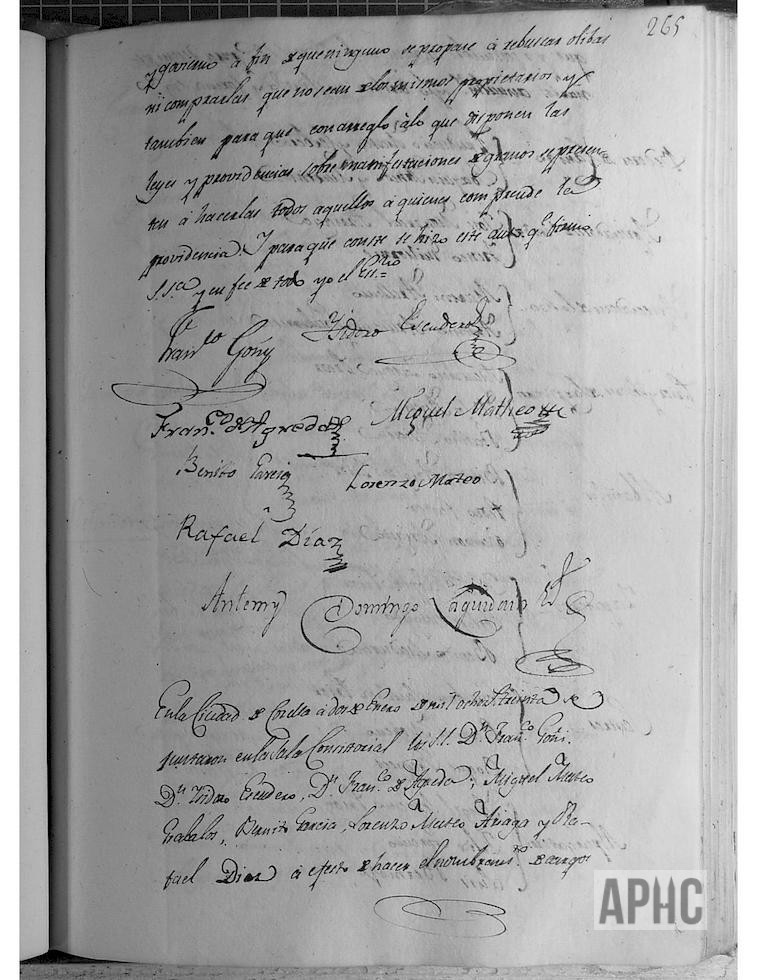 265
y govierno a fin de que ninguno se propase á rebuscar olibas
ni comprarlas que no sean de los mismos propietarios y
tambien para que con arreglo alo que disponen las
leyes y providencias sobre manifestaciones de granos se presen-
ten á hacerlas todos aquellos á quienes comprende la
providencia. Y para que conste se hizo este auto qe. firmó
S.Sa. y en fee de todo yo el Essno=
Franco. Goñy Ysidoro Escudero
Franco. de Agreda Miguel Matheo
Benito Garcia Lorenzo Mateo
Rafael Díaz
Antemy Domingo Laguidain Essno
En la Ciudad de Corella á dos de Enero de mil ochos. treinta se
juntaron en la Sala Consistorial los S.S. Dn. Franco. Goñi.
Dn. Ysidoro Escudero, Dn. Franco. de Agreda, Miguel Mateo
Grabalos, Benito Garcia, Lorenzo Mateo Ariaga y Ra-
fael Diaz á efecto de hacer el nombramto. de cargos
APHC